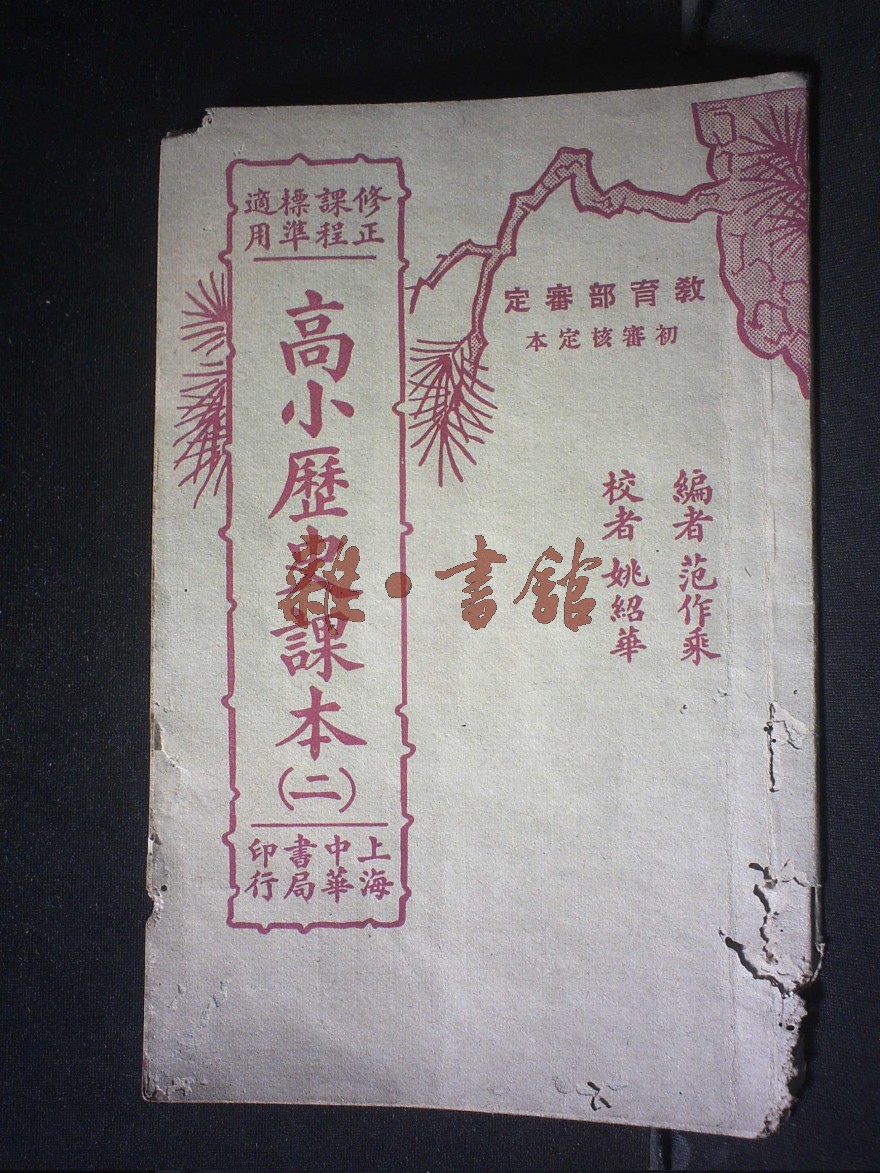 教育部審定
初審核定本
編者 范作乘
校者 姚紹華
修正課程標準適用
高小歷史課本(二)
上海中華書局印行
雜·書館